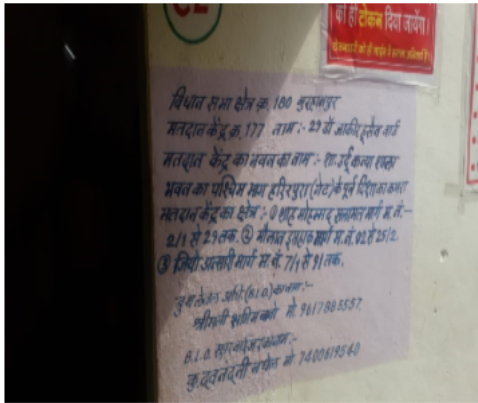 को ही टोकन दिया जायेगा।
विधान सभा क्षेत्र क्र. 180 बुरहानपुर
मतदान केंद्र क्र. 177 नाम :- 29 वी जाकीर हुसैन वार्ड
मतदान केंद्र का भवन का नाम :- शा. उर्दू कन्या शाला
भवन का पश्चिम भाग हरिरपुरा (गेट) के पूर्व दिशा का कमरा
मतदान केंद्र का क्षेत्र :- ① शाह मोहम्मद सलामत मार्ग म. नं. -
2/1 से 29 तक. ② मौलाना मार्ग म. नं. 02 से 25/2
③ अन्सारी मार्ग म. नं. 7/1 से 91 तक.
(B.L.O.) का नाम :-
श्रीमती मो. 9617885537
B.L.O. का नाम :-
कु. बघेल मो 7400619540